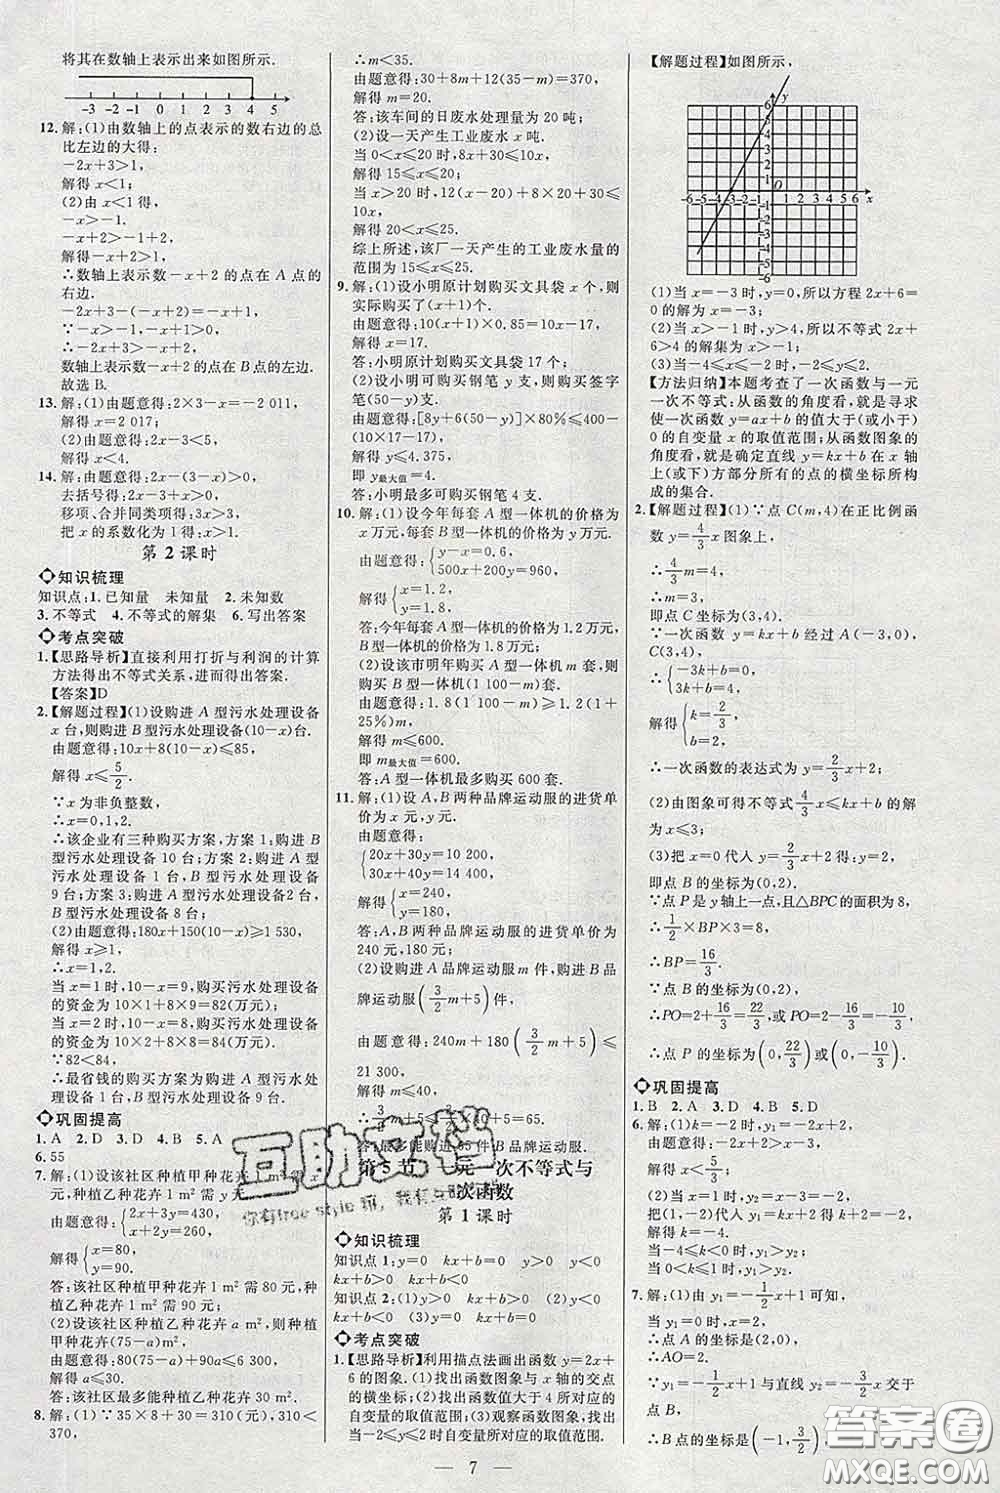 将其在数轴上表示出来如图所示.
-3 -2 -1 0 1 2 3 4 5
12.解:(1)由数轴上的点表示的数右边的总
比左边的大得:
-2x+3>1,
解得 x<1;
(2)由 x<1得.
-x>-1.
-x+2>-1+2,
解得-x+2>1;
∴数轴上表示数-x+2的点在A点的
右边.
-2x+3-(-x+2)=-x+1,
∵-x>-1,∴-x+1>0,
∴-2x+3>-x+2,
数轴上表示数-x+2的点在B点的左边.
故选B.
13.解:(1)由题意得:2×3-x=-2 011,
解得 x=2 017;
(2)由题意得:2x-3<5,
解得 x<4.
14.解:由题意得:2x-(3-x)>0,
去括号得:2x-3+x>0,
移项、合并同类项得:3x>3,
把 x 的系数化为1得:x>1.
第2课时
知识梳理
知识点:1.已知量 未知量 2.未知数
3.不等式 4.不等式的解集 6.写出答案
考点突破
1.【思路导析】直接利用打折与利润的计算
方法得出不等式关系,进而得出答案.
【答案】D
2.【解题过程】(1)设购进A型污水处理设备
x台,则购进B型污水处理设备(10-x)台.
由题意得:10x+8(10-x)≤85,
解得 x≤5/2.
∵x为非负整数,
∴x=0,1,2.
∴该企业有三种购买方案,方案1:购进B
型污水处理设备10台;方案2:购进A型
污水处理设备1台,购进B型污水处理设备
9台;方案3:购进A型污水处理设备2台,
购进B型污水处理设备8台;
(2)由题意得:180x+150(10-x)≥1 530,
解得 x≥1,
∴x=1,2.
当x=1时,10-x=9,购买污水处理设备
的资金为10×1+8×9=82(万元);
当x=2时,10-x=8,购买污水处理设备
的资金为10×2+8×8=84(万元).
∵82<84,
∴最省钱的购买方案为,购进A型污水处
理设备1台,购进B型污水处理设备9台.
巩固提高
1.A 2.D 3.D 4.D 5.A
6.55
7.解:(1)设该社区种植甲种花卉1 m²需x
元,种植乙种花卉1 m²需y元.
由题意得:{2x+3y=430,
x+2y=260,
解得{x=80,
y=90.
答:该社区种植甲种花卉1 m²需80元,种
植乙种花卉1 m²需90元;
(2)设该社区种植乙种花卉a m²,则种植
甲种花卉(75-a)m².
由题意得:80(75-a)+90a≤6 300,
解得 a≤30.
答:该社区最多能种植乙种花卉30 m².
8.解:(1)∵35×8+30=310(元),310<
370,
∴m<35.
由题意得:30+8m+12(35-m)=370,
解得 m=20.
答:该车间的日废水处理量为20吨;
(2)设一天产生工业废水x吨.
当0<x≤20时,8x+30≤10x,
解得15≤x≤20;
当x>20时,12(x-20)+8×20+30≤
10x,
解得20<x≤25.
综上所述,该厂一天产生的工业废水量的
范围为15≤x≤25.
9.解:(1)设小明原计划购买文具袋x个,则
实际购买了(x+1)个.
由题意得:10(x+1)×0.85=10x-17,
解得 x=17.
答:小明原计划购买文具袋17个;
(2)设小明可购买钢笔y支,则购买签字
笔(50-y)支.
由题意得:[8y+6(50-y)]×80%≤400-
(10×17-17),
解得 y≤4.375,
即 y最大值=4.
答:小明最多可购买钢笔4支.
10.解:(1)设今年每套A型一体机的价格为
x万元,每套B型一体机的价格为y万元.
由题意得:{y-x=0.6,
500x+200y=960,
解得{x=1.2,
y=1.8.
答:今年每套A型一体机的价格为1.2万
元,每套B型一体机的价格为1.8万元;
(2)设该市明年购买A型一体机m套,则
购买B型一体机(1 100-m)套.
由题意得:1.8(1 100-m)≥1.2(1+
25%)m,
解得 m≤600.
即 m最大值=600.
答:A型一体机最多购买600套.
11.解:(1)设A,B两种品牌运动服的进货单
价为x元,y元.
由题意得:
{20x+30y=10 200,
30x+40y=14 400,
解得{x=240,
y=180,
答:A,B两种品牌运动服的进货单价为
240元,180元;
(2)设购进A品牌运动服m件,购进B品
牌运动服(3/2m+5)件.
由题意得:240m+180(3/2m+5)≤
21 300,
解得 m≤40,
∴3/2m+5≤3/2×40+5=65.
答:最多能购进65件B品牌运动服.
第5节 一元一次不等式与
一次函数
第1课时
知识梳理
知识点1:y=0 kx+b=0 y>0 y<0
kx+b>0 kx+b<0
知识点2:(1)y>0 kx+b>0 (2)y<0
kx+b<0 (3)y=0 kx+b=0
考点突破
1.【思路导析】利用描点法画出函数y=2x+
6的图象.(1)找出函数图象与x轴的交点
的横坐标;(2)找出函数值大于4所对应的
自变量的取值范围;(3)观察函数图象,找出
当-2≤y≤2时自变量所对应的取值范围.
【解题过程】如图所示,
y
6
5
4
3
2
1
-6-5-4-3-2-1 O 1 2 3 4 5 6 x
-1
-2
-3
-4
-5
-6
(1)当x=-3时,y=0,所以方程2x+6=
0的解为x=-3;
(2)当x>-1时,y>4,所以不等式2x+
6>4的解集为x>-1;
(3)当-4≤x≤-2时,-2≤y≤2.
【方法归纳】本题考查了一次函数与一元
一次不等式:从函数的角度看,就是寻求
使一次函数y=ax+b的值大于(或小于)
0的自变量x的取值范围;从函数图象的
角度看,就是确定直线y=kx+b在x轴
上(或下)方部分所有的点的横坐标所构
成的集合.
2.【解题过程】(1)∵点C(m,4)在正比例函
数y=4/3x图象上,
∴4/3m=4,
∴m=3,
即点C坐标为(3,4).
∵一次函数y=kx+b经过A(-3,0),
C(3,4),
∴{-3k+b=0,
3k+b=4,
解得{k=2/3,
b=2,
∴一次函数的表达式为y=2/3x+2;
(2)由图象可得不等式4/3x≤kx+b的解
为x≤3;
(3)把x=0代入y=2/3x+2得:y=2,
即点B的坐标为(0,2).
∵点P是y轴上一点,且△BPC的面积为8,
∴1/2×BP×3=8,
∴BP=16/3.
∴PO=2+16/3=22/3,或PO=2-16/3=-10/3
∴点P的坐标为(0,22/3)或(0,-10/3).
巩固提高
1.B 2.A 3.D 4.B 5.D
6.解:(1)k=-2时,y₁=-2x+2,
根据题意得:-2x+2>x-3,
解得 x<5/3;
(2)当x=1时,y₂=x-3=-2,
把(1,-2)代入y₁=kx+2得k+2=-2,
解得k=-4.
当-4≤k<0时,y₁>y₂;
当0<k≤1时,y₁>y₂.
7.解:(1)由y₁=-1/2x+1可知,
当y₁=0时,x=2,
∴点A的坐标是(2,0),
∴AO=2.
∵y₁=-1/2x+1与y₂=-3/2x交于
点B,
∴B点的坐标是(-1,3/2),
互助文档
你有free style 稿,我有互助文档
答案圈
MXQE.COM
— 7 —